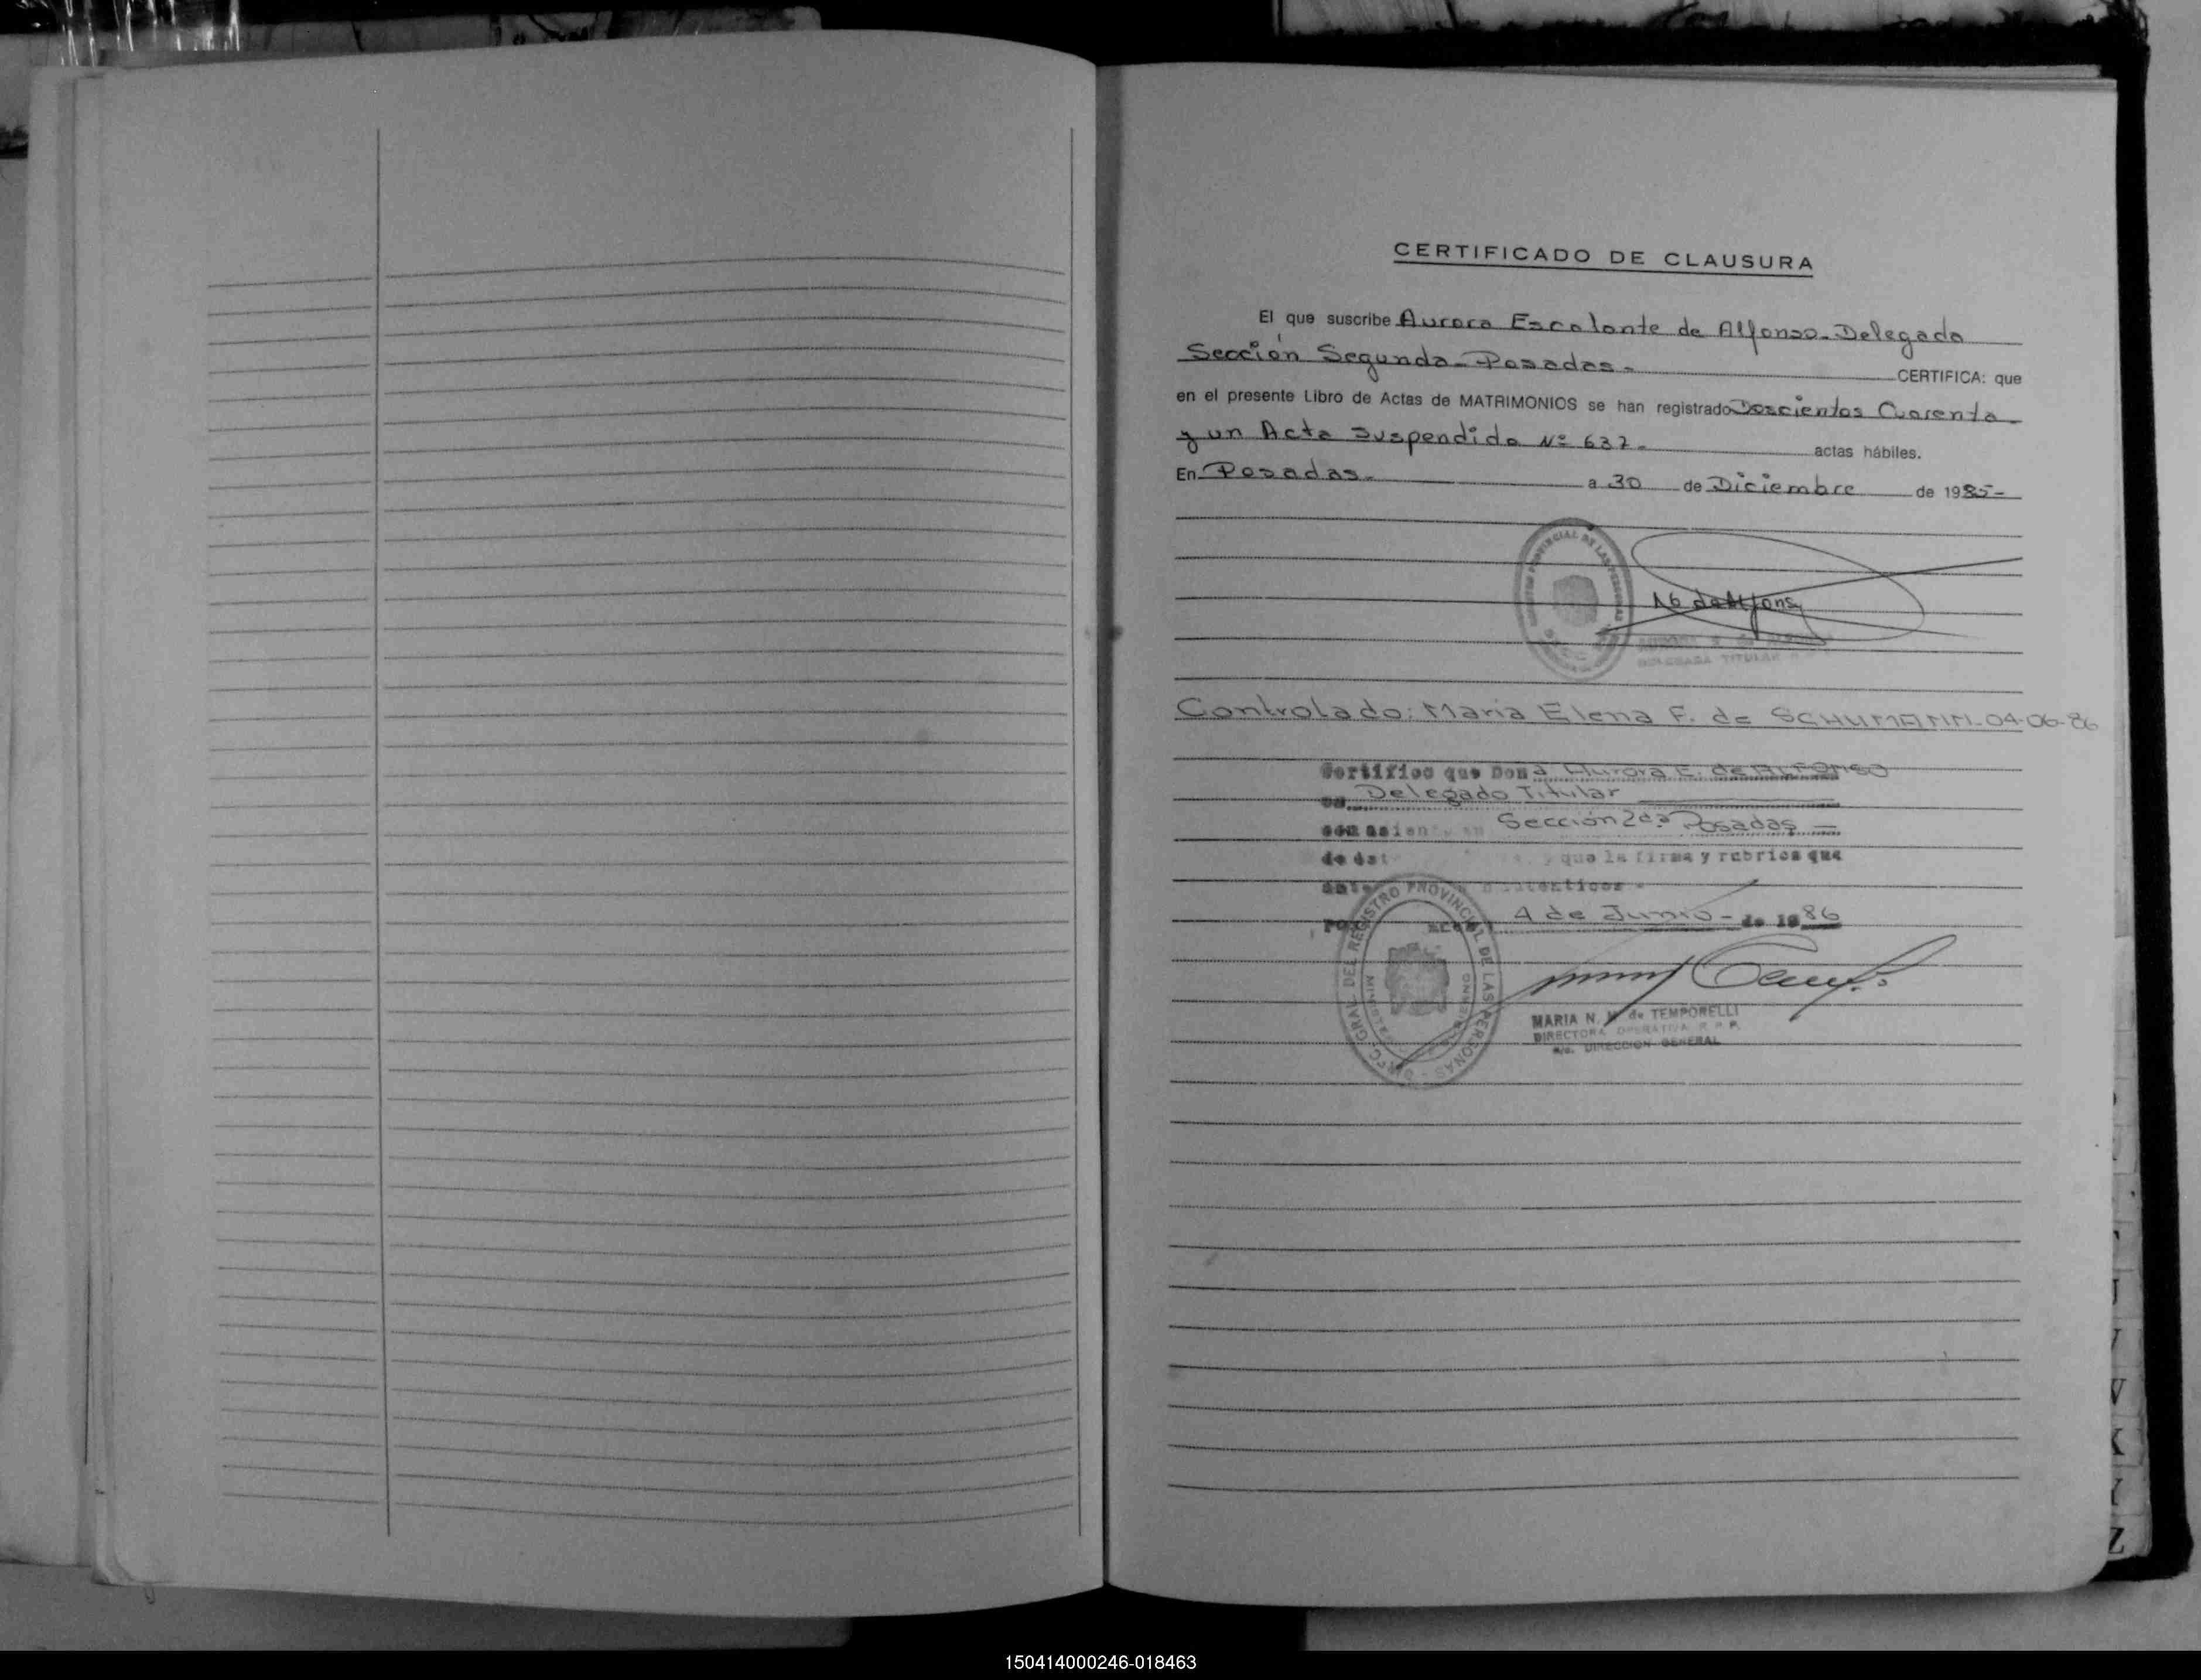 CERTIFICADO DE CLAUSURA
El que suscribe Aurora Escalante de Alfonso - Delegada
Sección Segunda - Posadas - CERTIFICA: que
en el presente Libro de Actas de MATRIMONIOS se han registrado Doscientos Cuarenta -
y un Acta Suspendida Nº 637 - actas hábiles.
En Posadas - a 30 de Diciembre de 1985 -
DELEGADA TITULAR
Controlado: Maria Elena F. de SCHUMANN - 04-06-86
Certifico que Dona Aurora E. de ALFONSO
Delegado Titular
con asien Sección 2da Posadas -
que la firma y rubrica que
4 de Junio - de 1986
DEL REGISTRO PROVINCIAL DE LAS PERSONAS
MARIA N. de TEMPORELLI
DIRECTORA OPERATIVA R. P. P.
DIRECCION GENERAL
J
V
K
Z
150414000246-018463